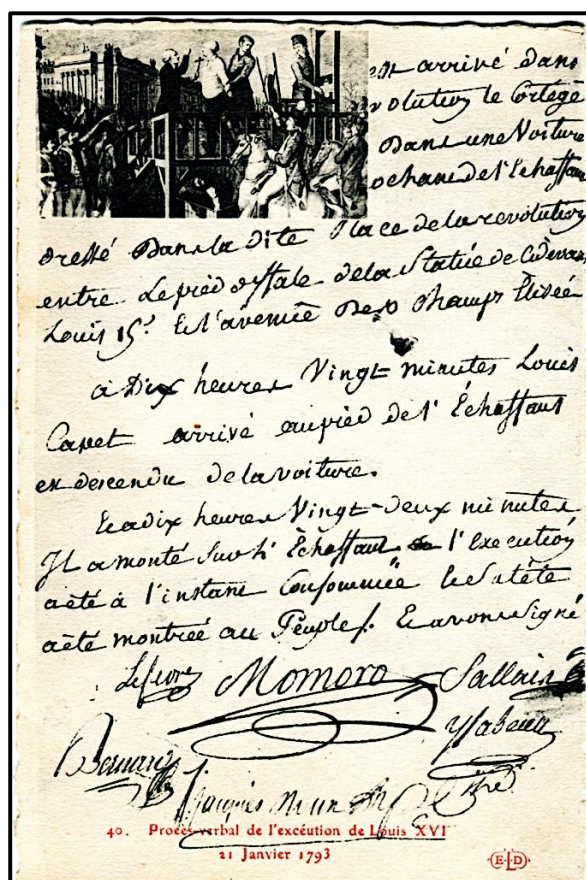 est arrivé dans
volution le Cortège
Dans une Voiture
ochant de l'Echaffau
dressé Dans la dite Place de la revolution
entre Le pied d'Estale de la Statüe de Cidevant
Louis 15e. Et l'avenüe Des Champs Elisée
à Dix heures Vingt minutes Louis
Capet arrivé au pied de l'Echaffaut
est descendu de la voiture.
Et a dix heures Vingt-deux minutes
Il a monté Sur L'Echaffaut l'Execution
a été à l'instant Consommée et Sa tête
a été montrée au Peuple/. Et avons Signé
Lefevre Momoro Sallais
Bernard Ysabeau
Jacques
40. Procès-verbal de l'excéution de Louis XVI
21 Janvier 1793
E·L·D